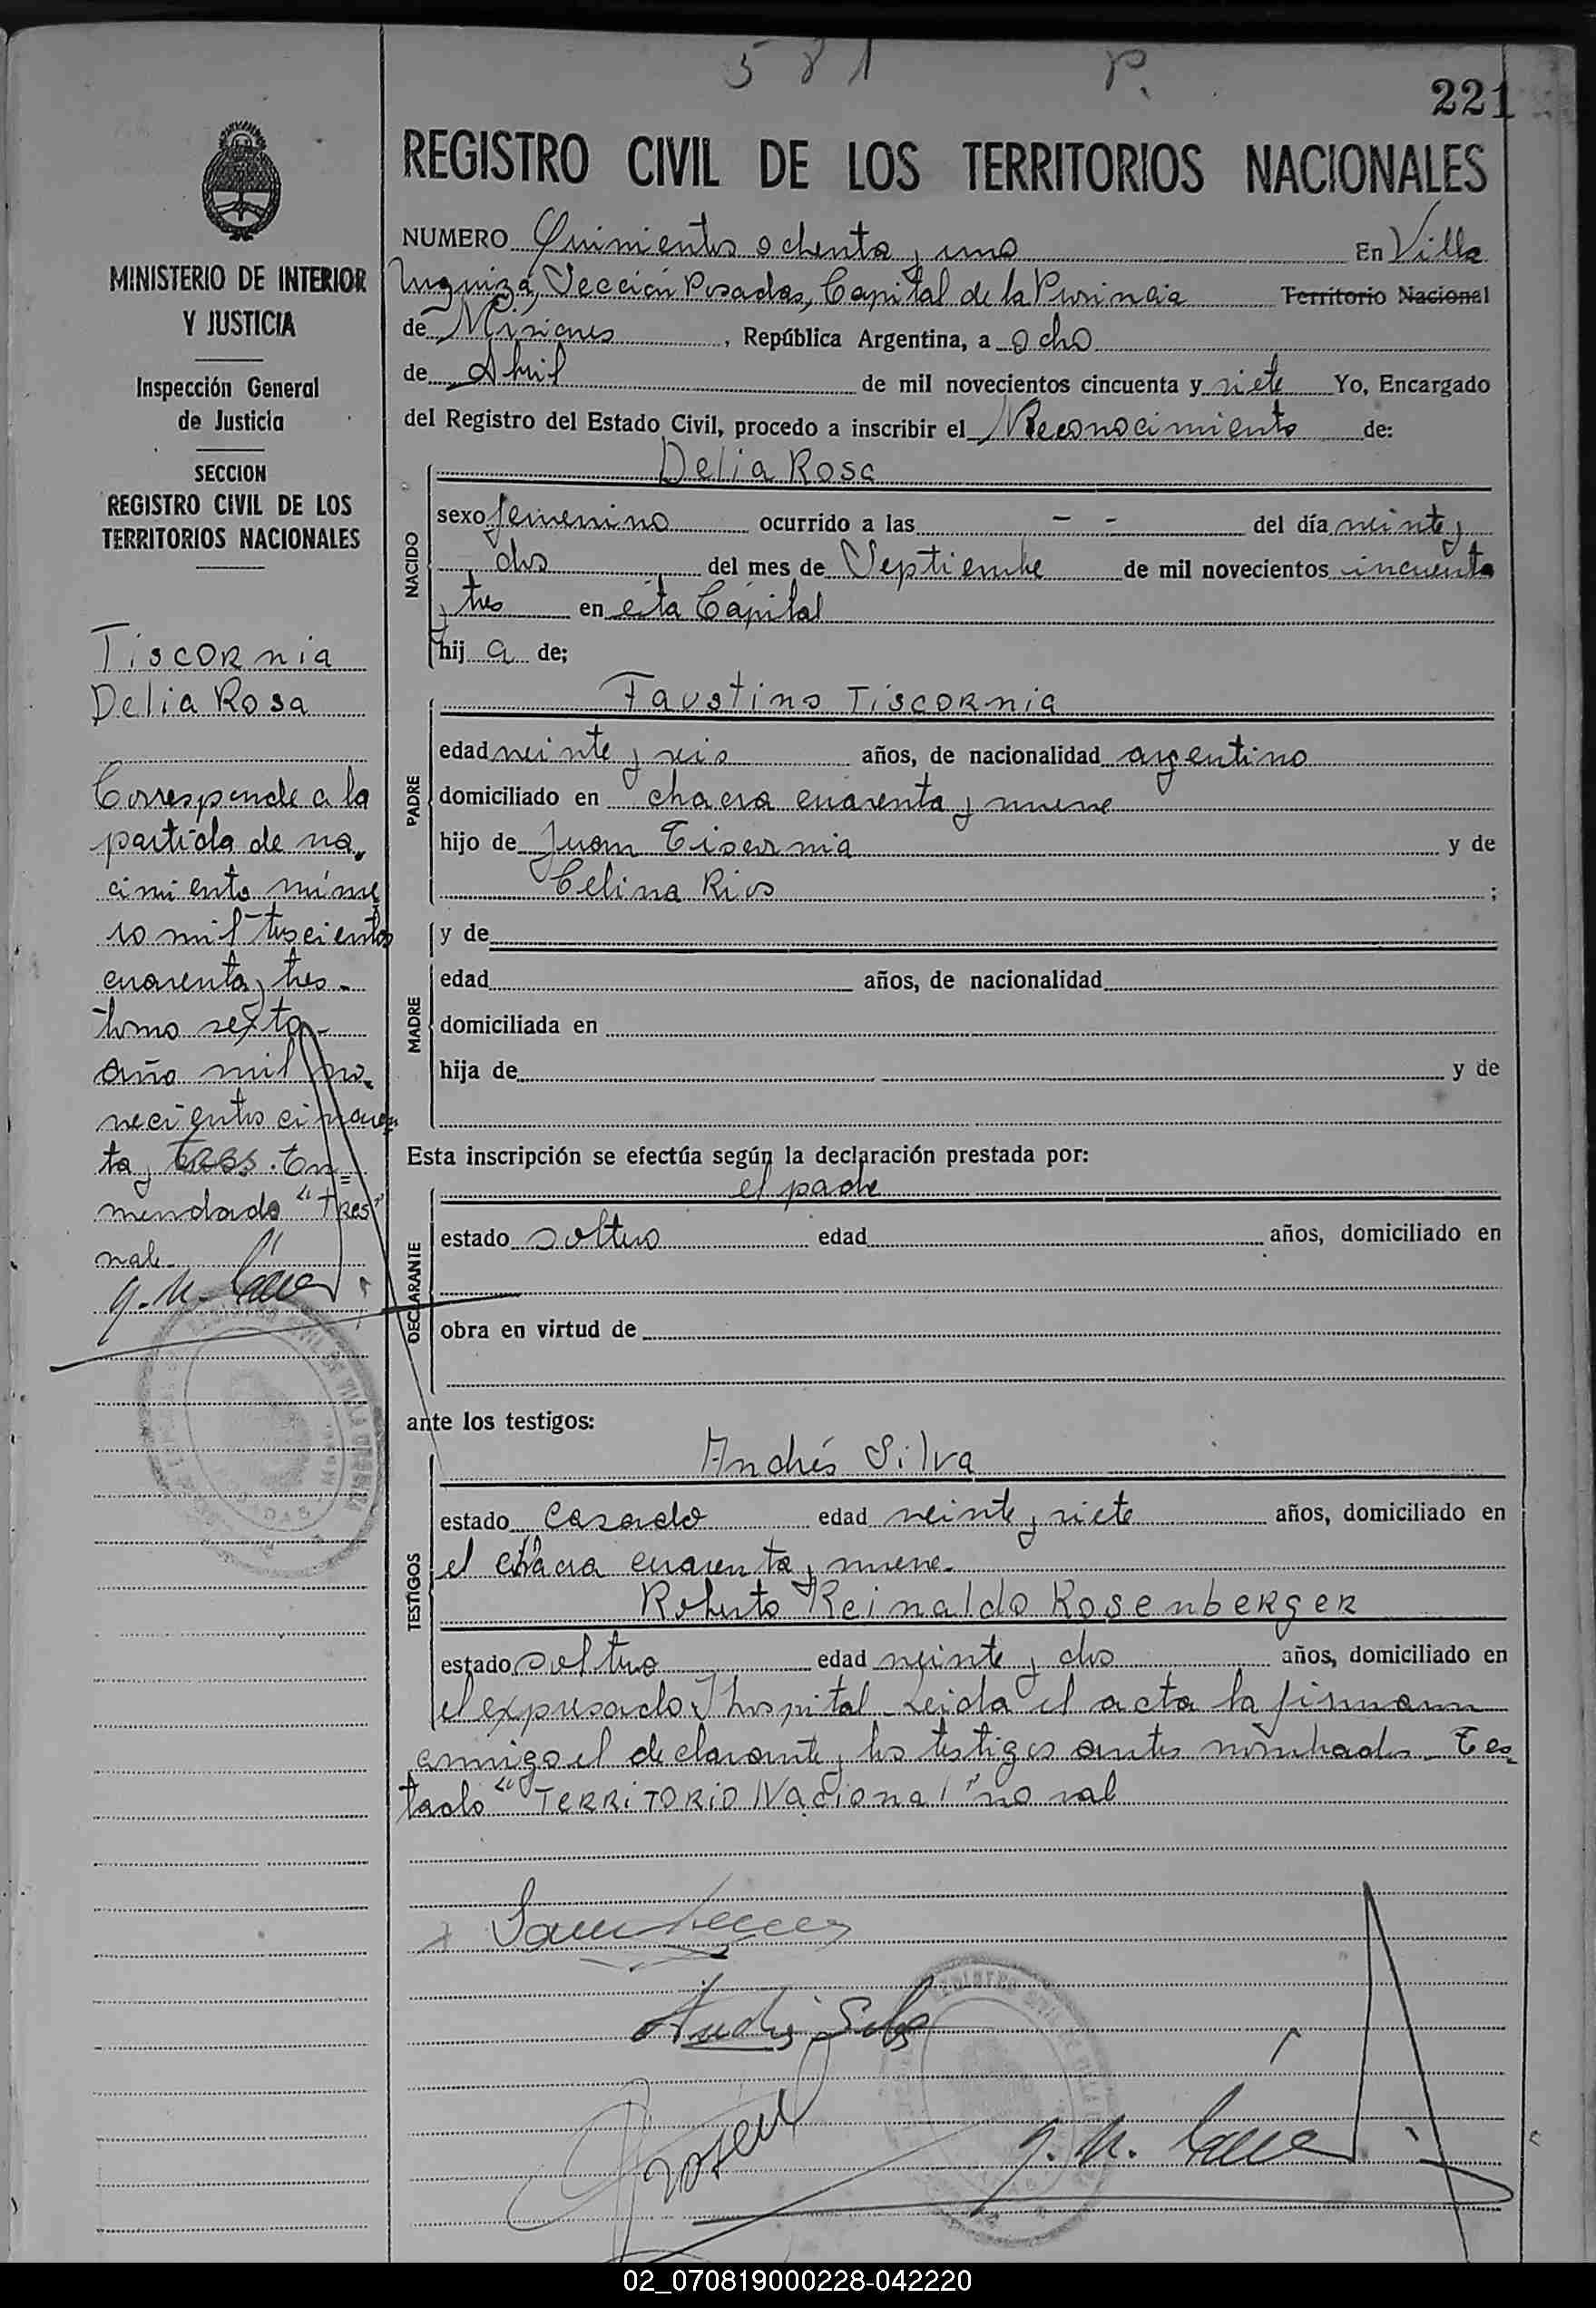 581 P.
221
REGISTRO CIVIL DE LOS TERRITORIOS NACIONALES
MINISTERIO DE INTERIOR
Y JUSTICIA
Inspección General
de Justicia
SECCION
REGISTRO CIVIL DE LOS
TERRITORIOS NACIONALES
Tiscornia
Delia Rosa
Corresponde a la
partida de na
cimiento núme
ro mil trescientos
cuarenta y tres-
tomo sexto-
año mil no
vecientos cincuen
ta y tres. En=
mendado "tres"
vale-
NUMERO Quinientos ochenta y uno En Villa
Urquiza, Sección Posadas, Capital de la Provincia Territorio Nacional
de Misiones, República Argentina, a ocho
de Abril de mil novecientos cincuenta y siete Yo, Encargado
del Registro del Estado Civil, procedo a inscribir el Reconocimiento de:
Delia Rosa
NACIDO
sexo femenino ocurrido a las - - del día veinte y
dos del mes de Septiembre de mil novecientos cincuenta
y tres en esta Capital
hij a de;
PADRE
Faustino Tiscornia
edad veinte y seis años, de nacionalidad argentino
domiciliado en chacra cuarenta y nueve
hijo de Juan Tiscornia y de
Celina Rios ;
MADRE
y de
edad años, de nacionalidad
domiciliada en
hija de y de
Esta inscripción se efectúa según la declaración prestada por:
DECLARANTE
el padre
estado soltero edad años, domiciliado en
obra en virtud de
ante los testigos:
TESTIGOS
Andrés Silva
estado casado edad veinte y siete años, domiciliado en
el chacra cuarenta y nueve-
Roberto Reinaldo Rosenberger
estado soltero edad veinte y dos años, domiciliado en
el expresado hospital- Leida el acta la firmaron
conmigo el declarante y los testigos antes nombrados- Tes
tado "Territorio Nacional" no val
Andrés Silva
02_070819000228-042220